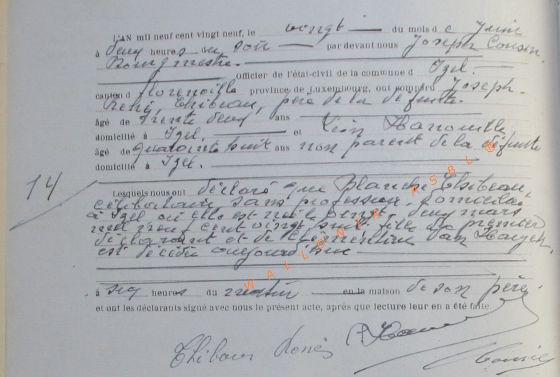 L'AN mil neuf cent vingt neuf, le vingt du mois de Juin
à deux heures du soir par devant nous Joseph Cousin
Bourgmestre
Officier de l'état-civil de la commune d Izel
canton d Florenville province de Luxembourg, ont comparu Joseph
René, Thibeau, père de la défunte
âgé de trente deux ans
domicilié à Izel et Léon Hanouille
âgé de quarante huit ans non parent de la défunte
domicilié à Izel.
14
Lesquels nous ont déclaré que Blanche Thibeau,
célibataire sans profession domiciliée
à Izel où elle est née le vingt deux mars
neuf cent vingt fille du premier
déclarant et de Clémentine Van
est décédée aujourd'hui
à six heures du matin en la maison de son père
et ont les déclarants signé avec nous le présent acte, après que lecture leur en a été faite
Thibeau René
WALLONIA ASBL